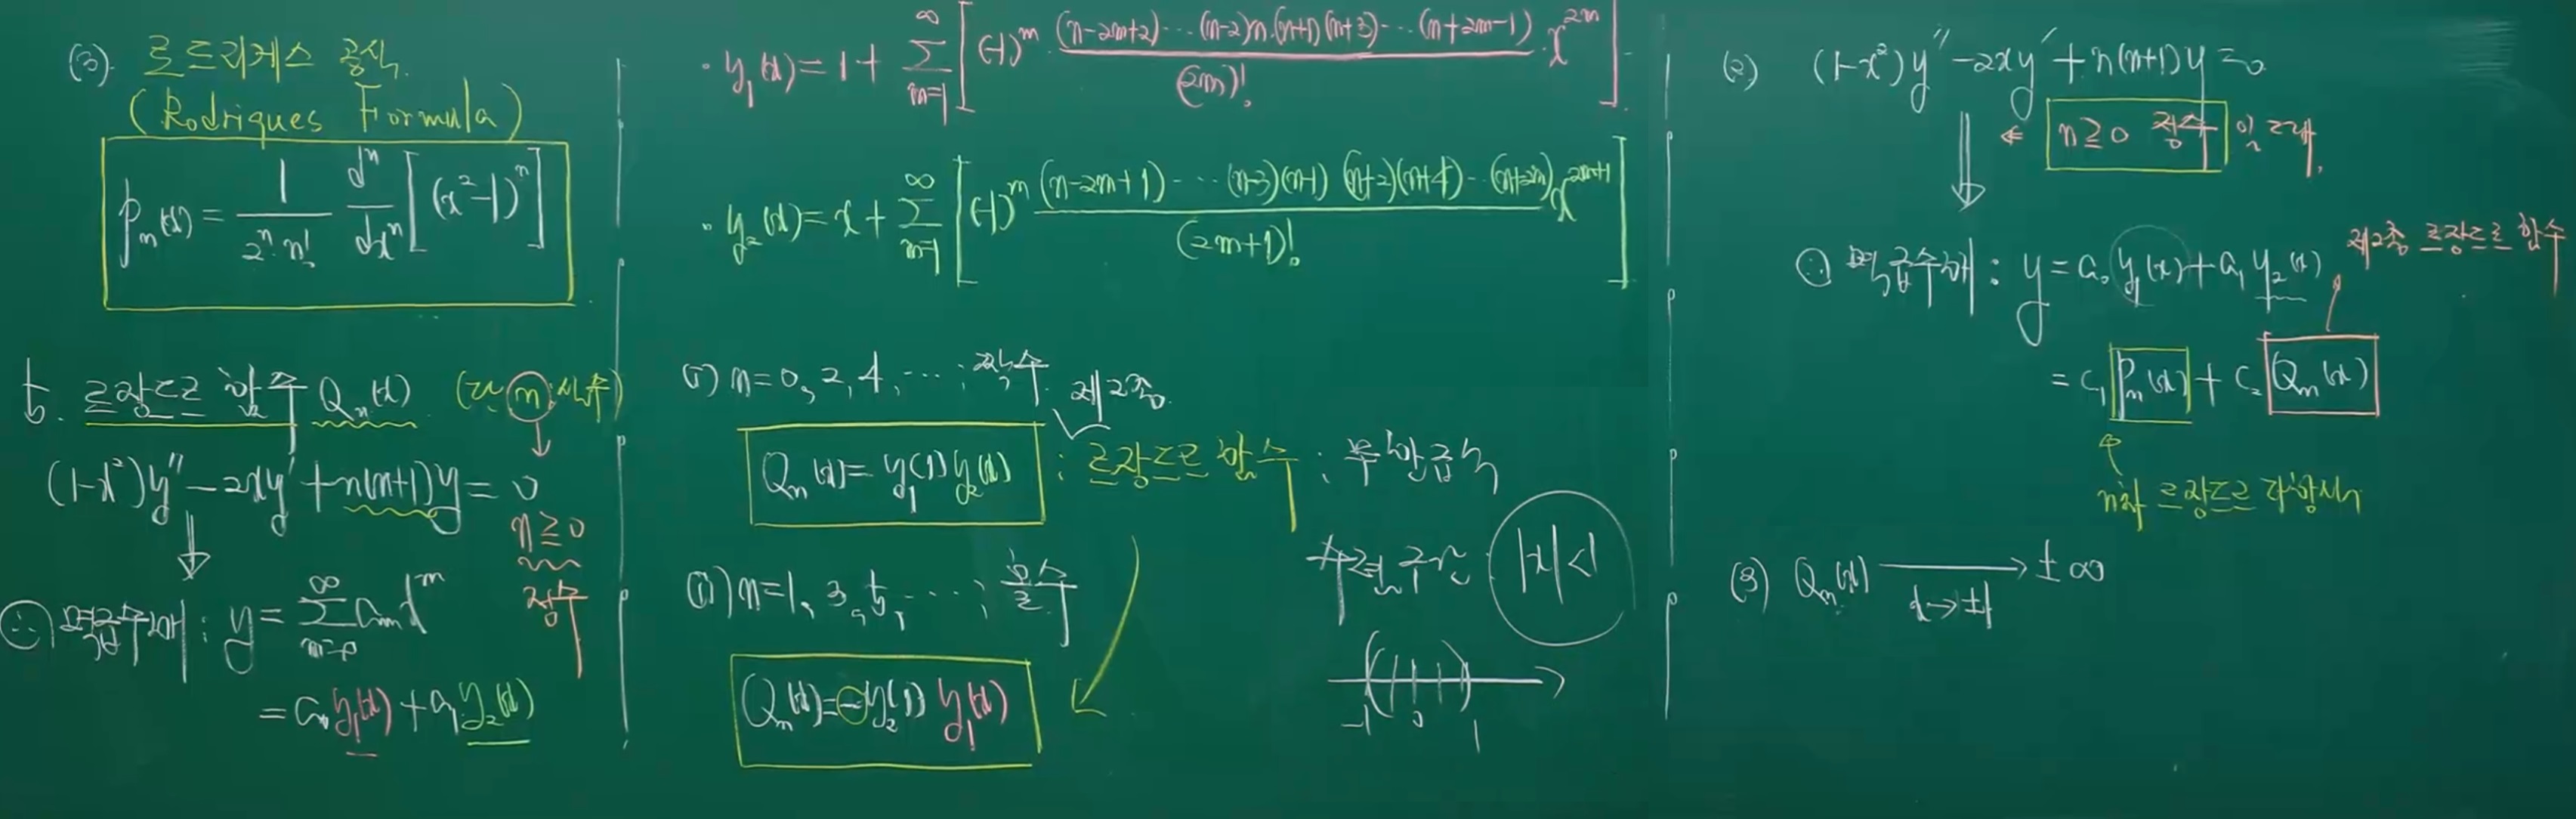 (3). 로드리게스 공식.
(Rodriques Formula)
Pn(x) = 1/(2^n·n!) d^n/dx^n [(x²-1)^n]
5. 르장드르 함수 Qn(x) (단, n:상수)
(1-x²)y″-2xy′+n(n+1)y=0
n≧0
정수
∴ 멱급수해: y = Σ_{m=0}^∞ a_m x^m
= a₀y₁(x)+a₁y₂(x)
· y₁(x)=1+ Σ_{m=1}^∞ [(-1)^m · (n-2m+2)⋯(n-2)n·(n+1)(n+3)⋯(n+2m-1)/(2m)! · x^{2m}]
· y₂(x)=x+ Σ_{m=1}^∞ [(-1)^m (n-2m+1)⋯(n-3)(n-1)(n+2)(n+4)⋯(n+2m)/(2m+1)! x^{2m+1}]
(i) n=0, 2, 4, ⋯ ; 짝수 제2종
Qn(x)=y₁(1)y₂(x) : 르장드르 함수 ; 무한급수
수렴구간: |x|<1
(ii) n=1, 3, 5, ⋯ ; 홀수
Qn(x)=-y₂(1)y₁(x)
-1 0 1
(2) (1-x²)y″-2xy′+n(n+1)y=0
⇐ n≧0 정수 일 때,
∴ 멱급수해: y=a₀y₁(x)+a₁y₂(x) 제2종 르장드르 함수
= c₁Pn(x)+c₂Qn(x)
n차 르장드르 다항식
(3) Qn(x) ⟶ ±∞
x→±1